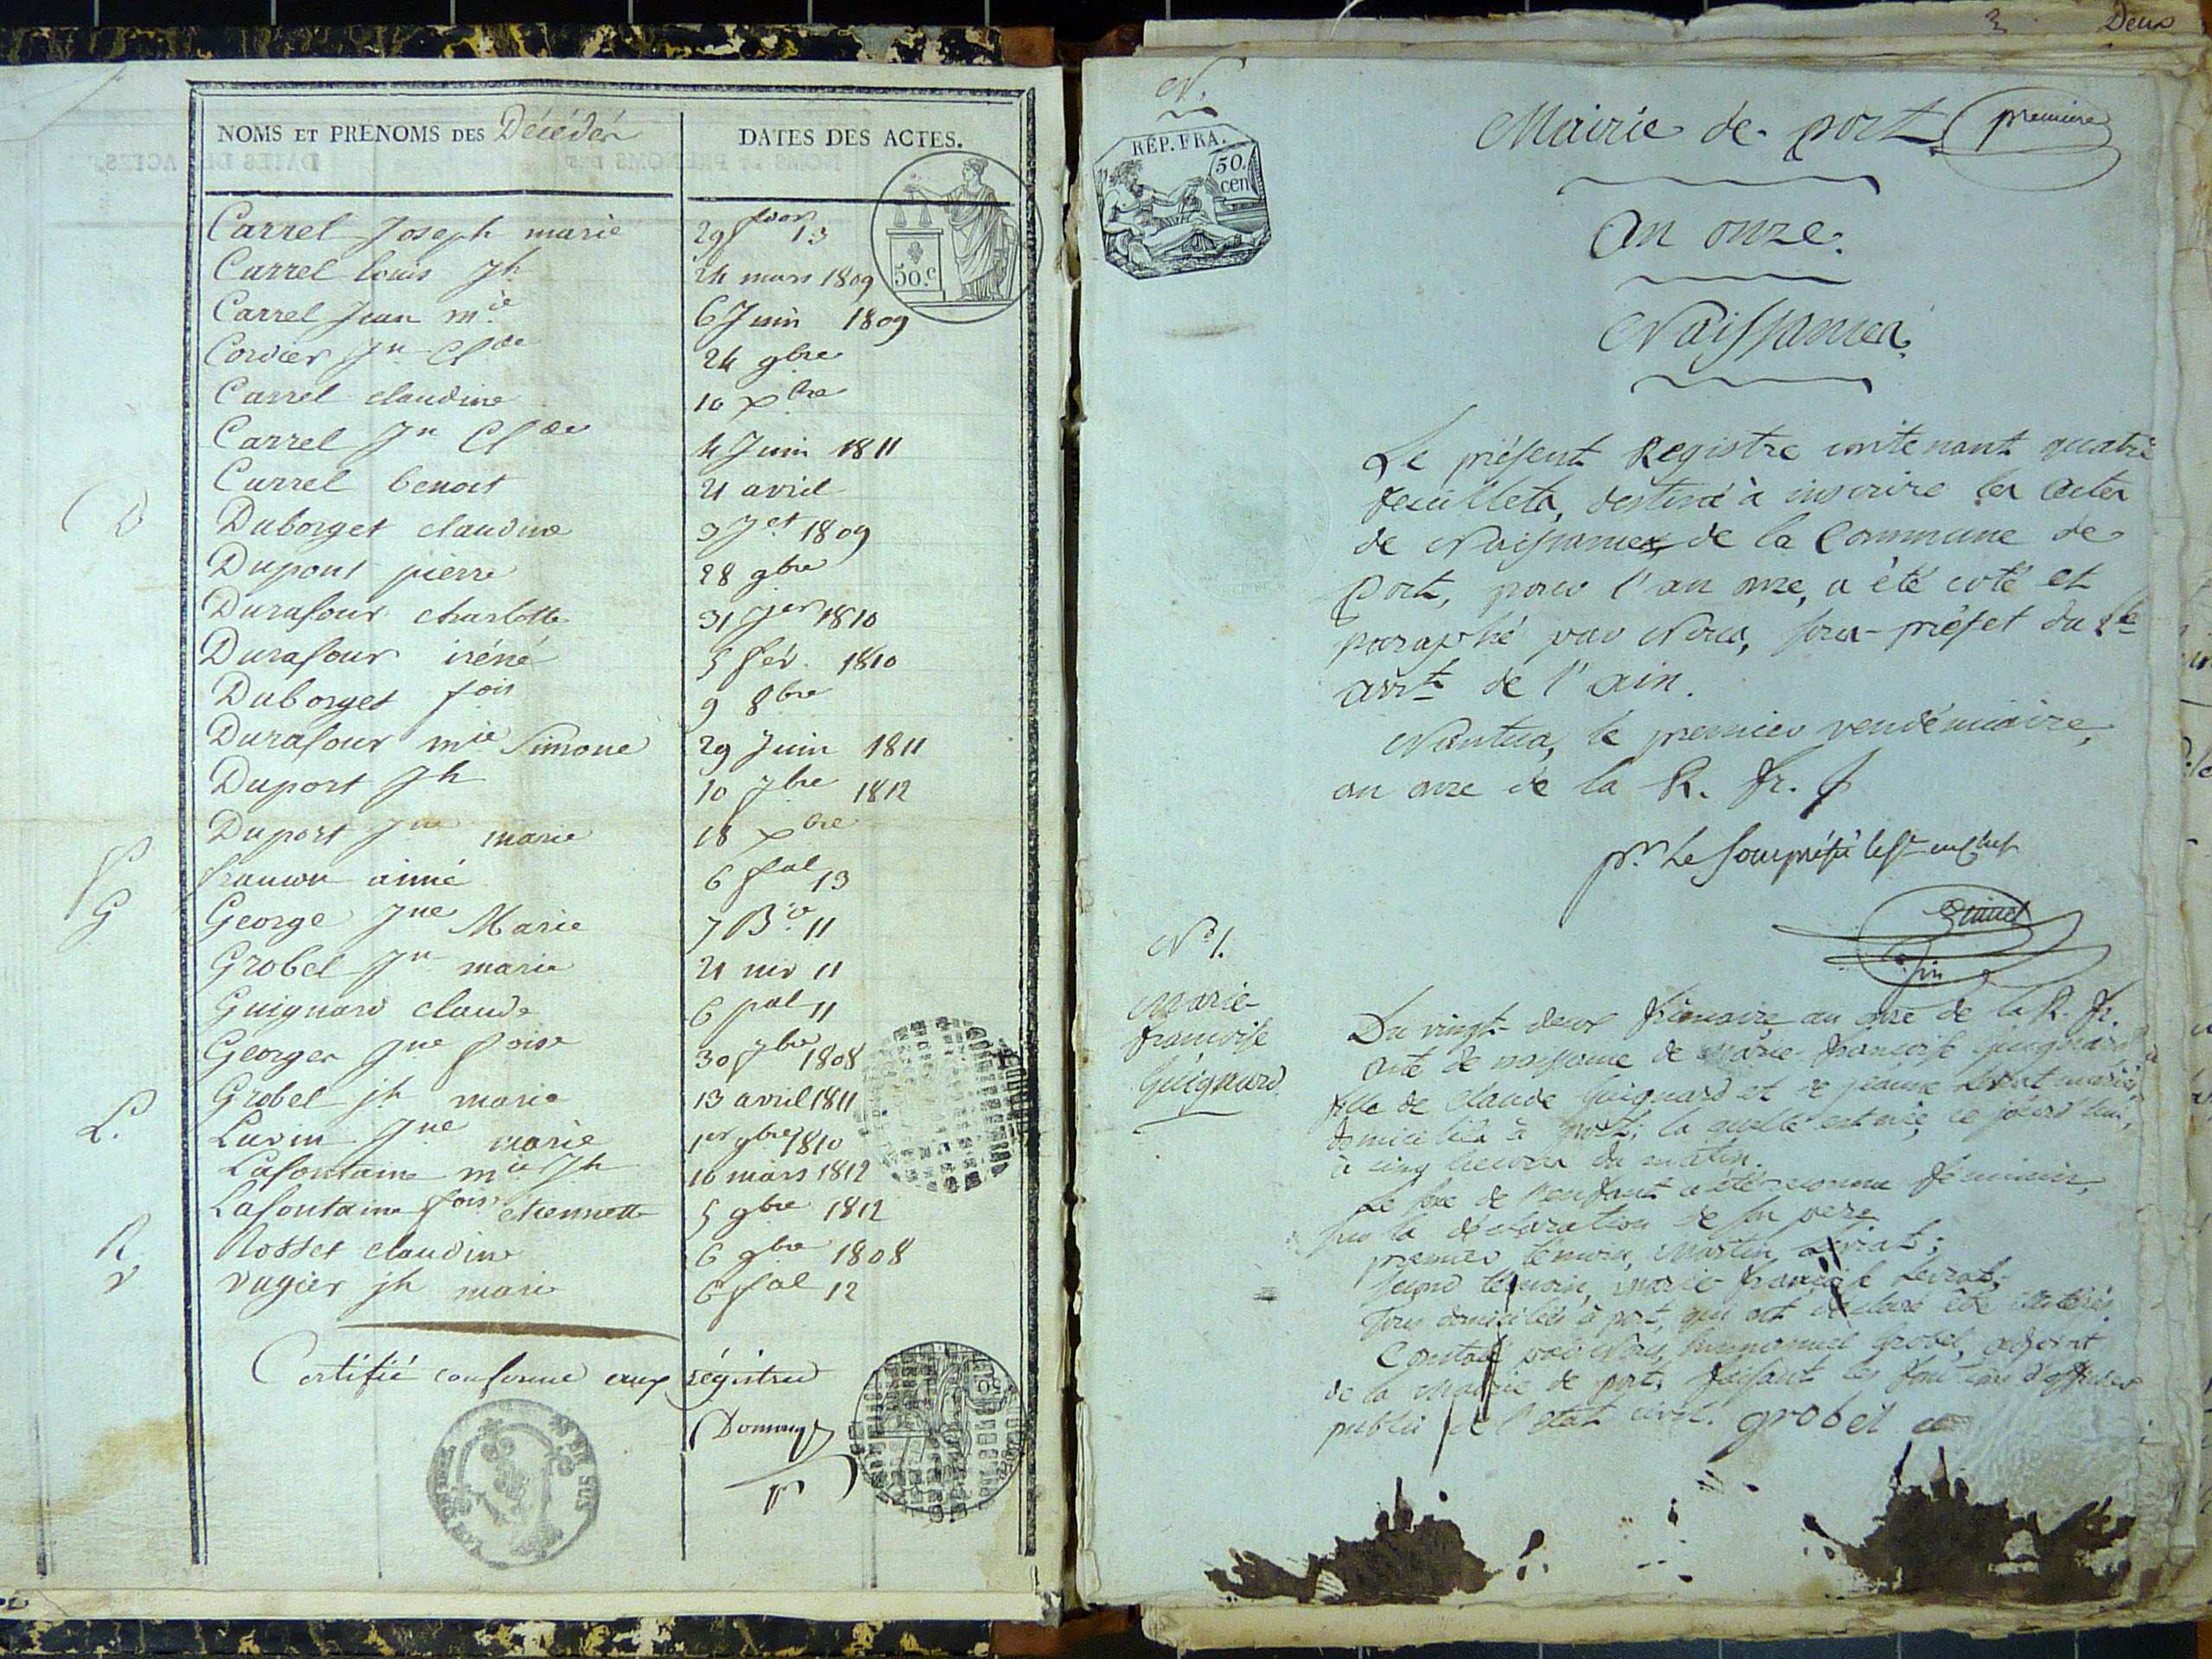 NOMS ET PRÉNOMS DES Décédés
DATES DES ACTES.
Carrel Joseph marie 29 13
Carrel louis Jh 24 mars 1809
Carrel Jean mie 6 Juin 1809
Cordier Jn Clde 24 9bre
Carrel claudine 10 xbre
Carrel Jn Clde 4 Juin 1811
Carrel benoit 21 avril
D
Duborget claudine 3 Jet 1809
Dupont pierre 28 9bre
Durafour charlotte 31 Jer 1810
Durafour iréné 5 fév. 1810
Duborget fois 9 8bre
Durafour mie Simone 29 Juin 1811
Duport Jh 10 7bre 1812
Duport Jne marie 18 xbre
F
aimé 6 fal 13
G
George Jne Marie 7 Bre 11
Grobel Jn marie 21 niv 11
Guignard claude 6 pal 11
Georges Jne foise 30 7bre 1808
Grobel jh marie 13 avril 1811
L.
Luvin Jne marie 1er 9bre 1810
Lafontaine mie Jh 16 mars 1812
Lafontaine foise etiennette 5 9bre 1812
R
Rosset claudine 6 9bre 1808
V
vugier jh marie 6 fal 12
Certifié conforme aux régistres
50.c
3 Deux
N.
RÉP. FRA.
50.
cen
Mairie de port. première
An onze.
Naissances.
Le présent Registre contenant quatre
feuillets, destiné à inscrire les actes
de Naissances de la Commune de
Port, pour l'an onze, a été coté et
paraphé par Nous, sous-préfet du
arrt de l'ain.
Nantua, le premier vendémiaire,
an onze de la R. fr.
pr. Le Souspréfet
N° 1.
Marie
françoise
Guignard
Du vingt-deux frimaire an onze de la R. fr.
acte de naissance de Marie-françoise Guignard
fille de Claude Guignard et de jeanne mariés,
domiciliés à port; la quelle est née, ce jourd'hui,
à cinq heures du matin.
Le sexe de l'enfant a été reconnu féminin,
sur la déclaration de son père.
premier témoin, Martin Levrat;
second témoin, Marie-françoise Levrat;
Tous domiciliés à port, qui ont déclaré être illitérés.
Constaté par Nous, Emmanuel grobel, adjoint
de la Mairie de port, faisant les fonctions d'officier
public de l'état civil. grobel